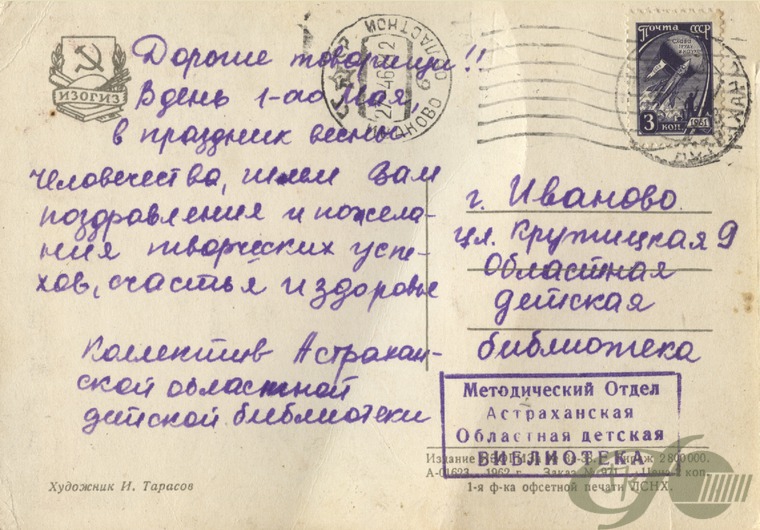 ИЗОГИЗ
Дорогие товарищи!!
В день 1-ого Мая,
в праздник весны
человечества, шлем Вам
поздравления и пожела-
ния творческих успе-
хов, счастья и здоровье
Коллектив Астрахан-
ской областной
детской библиотеки
Художник И. Тарасов
ИВАНОВО ОБЛАСТНОЙ
Почта СССР
3 коп. 1961
г. Иваново
ул. Крутицкая 9
Областная
детская
библиотека
Методический Отдел
Астраханская
Областная детская
БИБЛИОТЕКА
Издание Тираж 2 800 000.
1962 г. Заказ № Цена коп.
1-я ф-ка офсетной печати ЛСНХ.